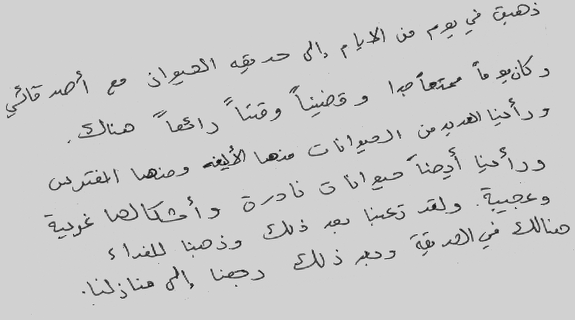 ذهبت في يوم من الايام إلى حديقه الحيوان مع أصدقائي
وكان يوماً ممتعاً جدا وقضينا وقتاً رائعاً هناك.
ورأينا العديد من الحيوانات منها الأليفه ومنها المفترس
ورأينا أيضاً حيوانات نادرة وأشكالها غريبة
وعجيبة. ولقد تعبنا بعد ذلك وذهبنا للغداء
هنالك في الحديقة وبعد ذلك رجعنا إلى منازلنا.